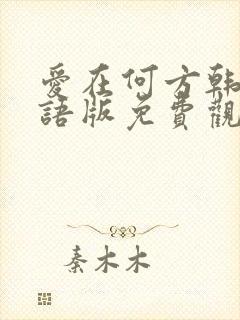 愛在何方韩
語版免費觀
秦木木